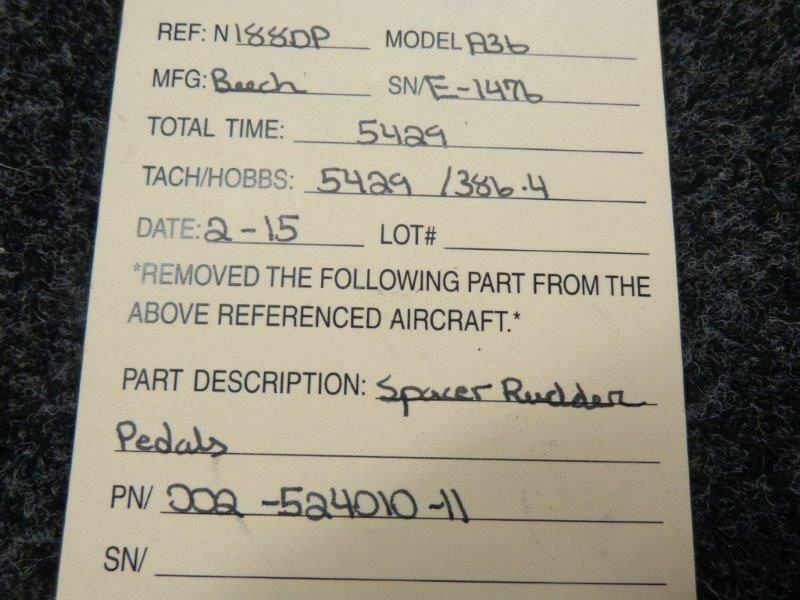 REF: N 188DP MODEL A36
MFG: Beech SN/ E-1476
TOTAL TIME: 5429
TACH/HOBBS: 5429 /386.4
DATE: 2-15 LOT#
*REMOVED THE FOLLOWING PART FROM THE
ABOVE REFERENCED AIRCRAFT.*
PART DESCRIPTION: Spacer Rudder
Pedals
PN/ 002-524010-11
SN/